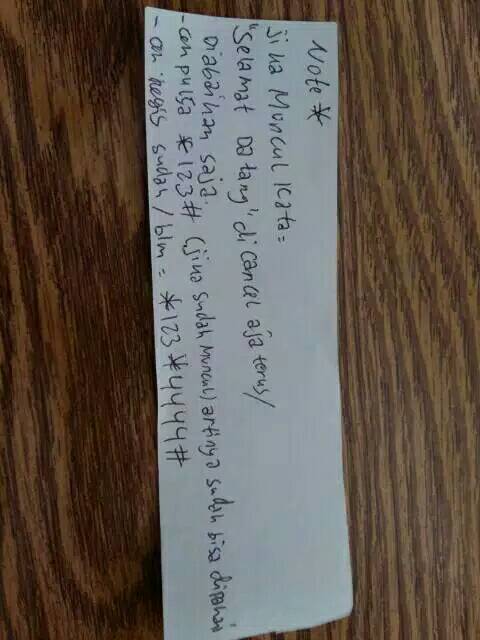 Note *
jika Muncul kata =
"Selamat Datang" di cancel aja terus/
Diabaikan saja.
- cen pulsa *123# (jika sudah muncul) artinya sudah bisa dipakai
- cen regis sudah/blm = *123*4444#